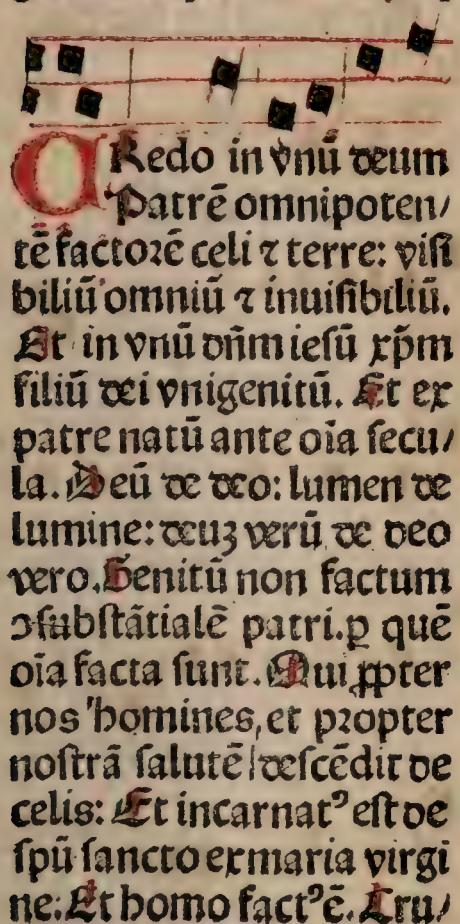 CRedo in vnū deum
Patrē omnipoten/
tē factoꝛē celi ⁊ terre: viſi
biliū omniū ⁊ inuiſibiliū.
Et in vnū dn̄m ieſū xp̄m
filiū dei vnigenitū. Et ex
patre natū ante oīa ſecu/
la. Deū de deo: lumen de
lumine: deuꝫ verū de deo
vero. Genitū non factum
ꝯſubſtātialē patri. ꝑ quē
oīa facta ſunt. Qui ꝓpter
nos homines, et pꝛopter
noſtrā ſalutē deſcēdit de
celis: Et incarnatꝰ eſt de
ſpū ſancto ex maria virgi
ne: Et homo factꝰ ē. Cru/